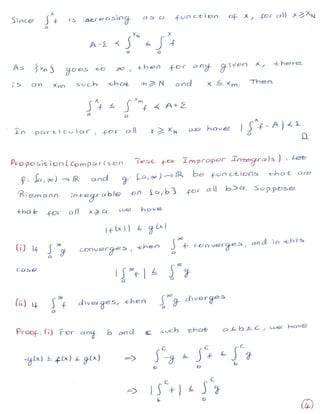 Since ∫_a^x f is increasing as a function of x, for all x ≥ x_N
A-ε < ∫_a^{x_N} f ≤ ∫_a^x f
As {x_n} goes to ∞, then for any given x, there
is an x_m such that m ≥ N and x ≤ x_m. Then
∫_a^x f ≤ ∫_a^{x_m} f < A+ε
In particular, for all x ≥ x_N we have |∫_a^x f - A| < ε
□
Proposition (Comparison Test for Improper Integrals). Let
f: [a,∞) → ℝ and g: [a,∞) → ℝ be functions that are
Riemann integrable on [a,b] for all b>a. Suppose
that for all x ≥ a we have
|f(x)| ≤ g(x)
(i) If ∫_a^∞ g converges, then ∫_a^∞ f converges, and in this
case |∫_a^∞ f| ≤ ∫_a^∞ g
(ii) If ∫_a^∞ f diverges, then ∫_a^∞ g diverges
Proof: (i) For any b and c such that a ≤ b ≤ c, we have
-g(x) ≤ f(x) ≤ g(x) ⇒ ∫_b^c -g ≤ ∫_b^c f ≤ ∫_b^c g
⇒ |∫_b^c f| ≤ ∫_b^c g
4